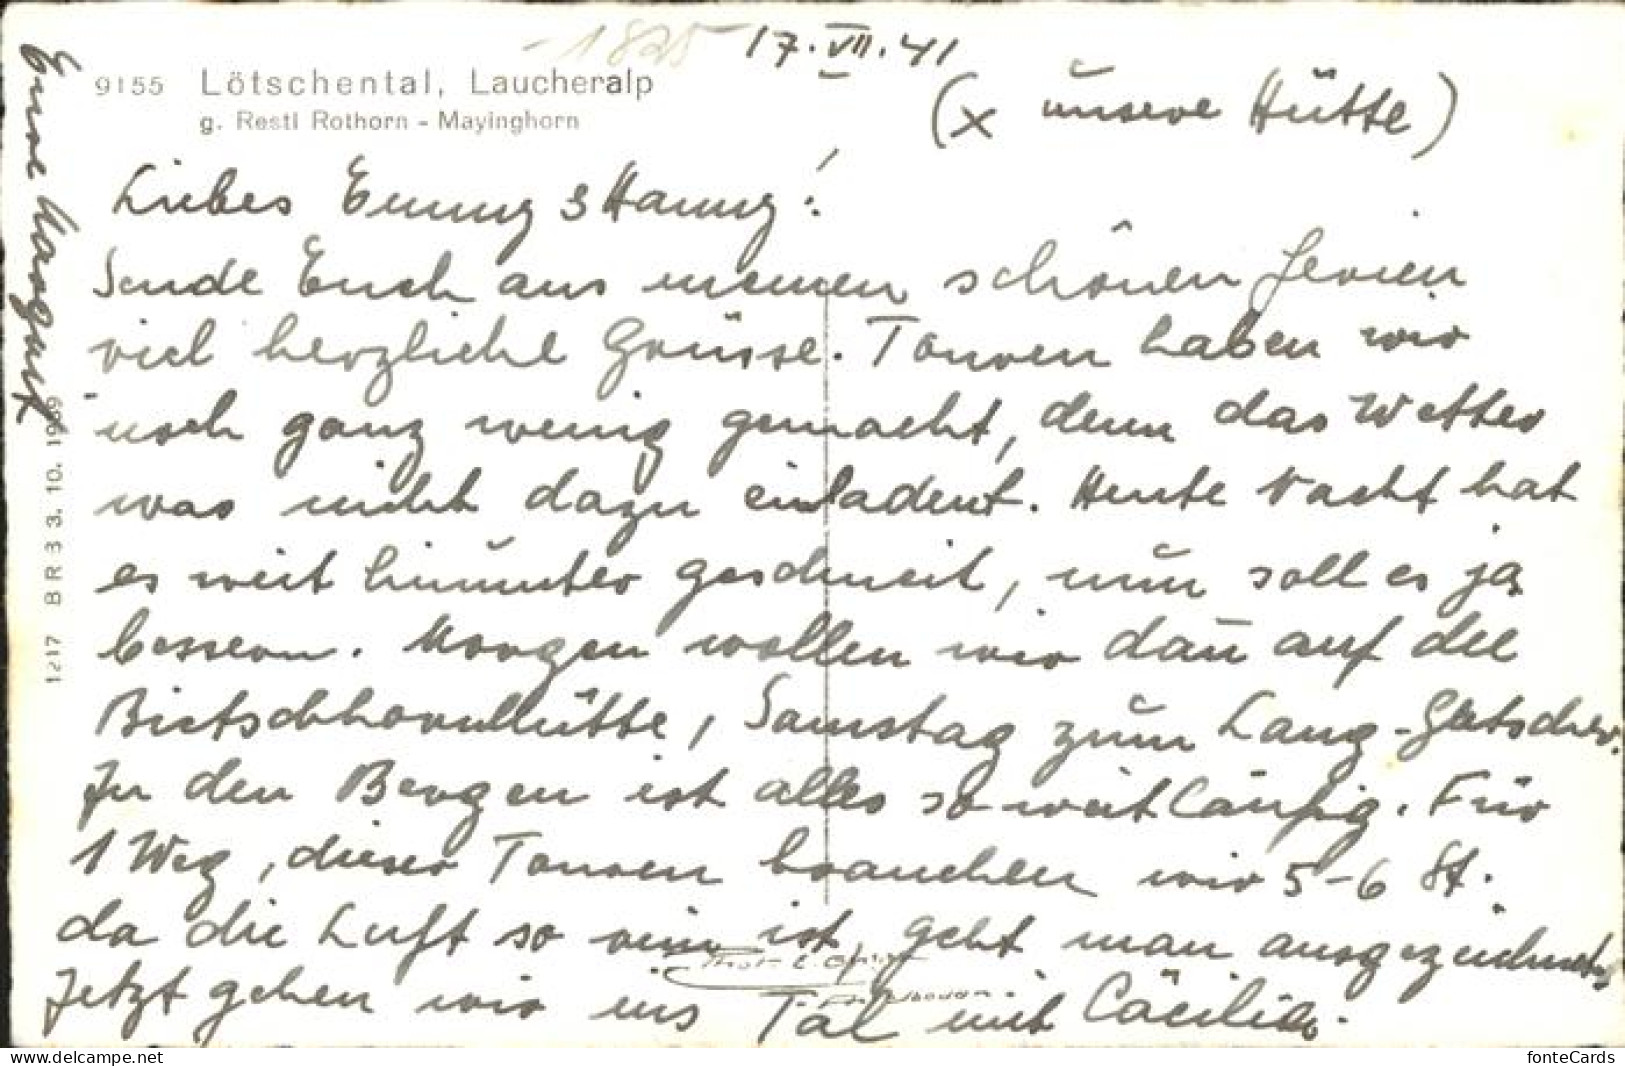 -1825-
17.VII.41
9155 Lötschental, Laucheralp
g. Restl Rothorn - Mayinghorn
(x unsere Hütte)
Liebes Emmy & Hanny!
Sende Euch aus meinen schönen Ferien
viel herzliche Grüsse. Touren haben wir
noch ganz wenig gemacht, denn das Wetter
was nicht dazu einladent. Heute Nacht hat
es weit hinunter geschneit, nun soll es ja
bessern. Morgen wollen wir dañ auf die
Bietschhornhütte, Samstag zum Lang-Gletscher.
In den Bergen ist alles so weitläufig. Für
1 Weg, dieser Touren brauchen wir 5-6 St.
da die Luft so rein ist, geht man ausgezeichnet.
Jetzt gehen wir ins Tal mit Cäcilia.
Eure Margrit
1217 BR 3 3. 10. 1939
Phot.
fonteCards